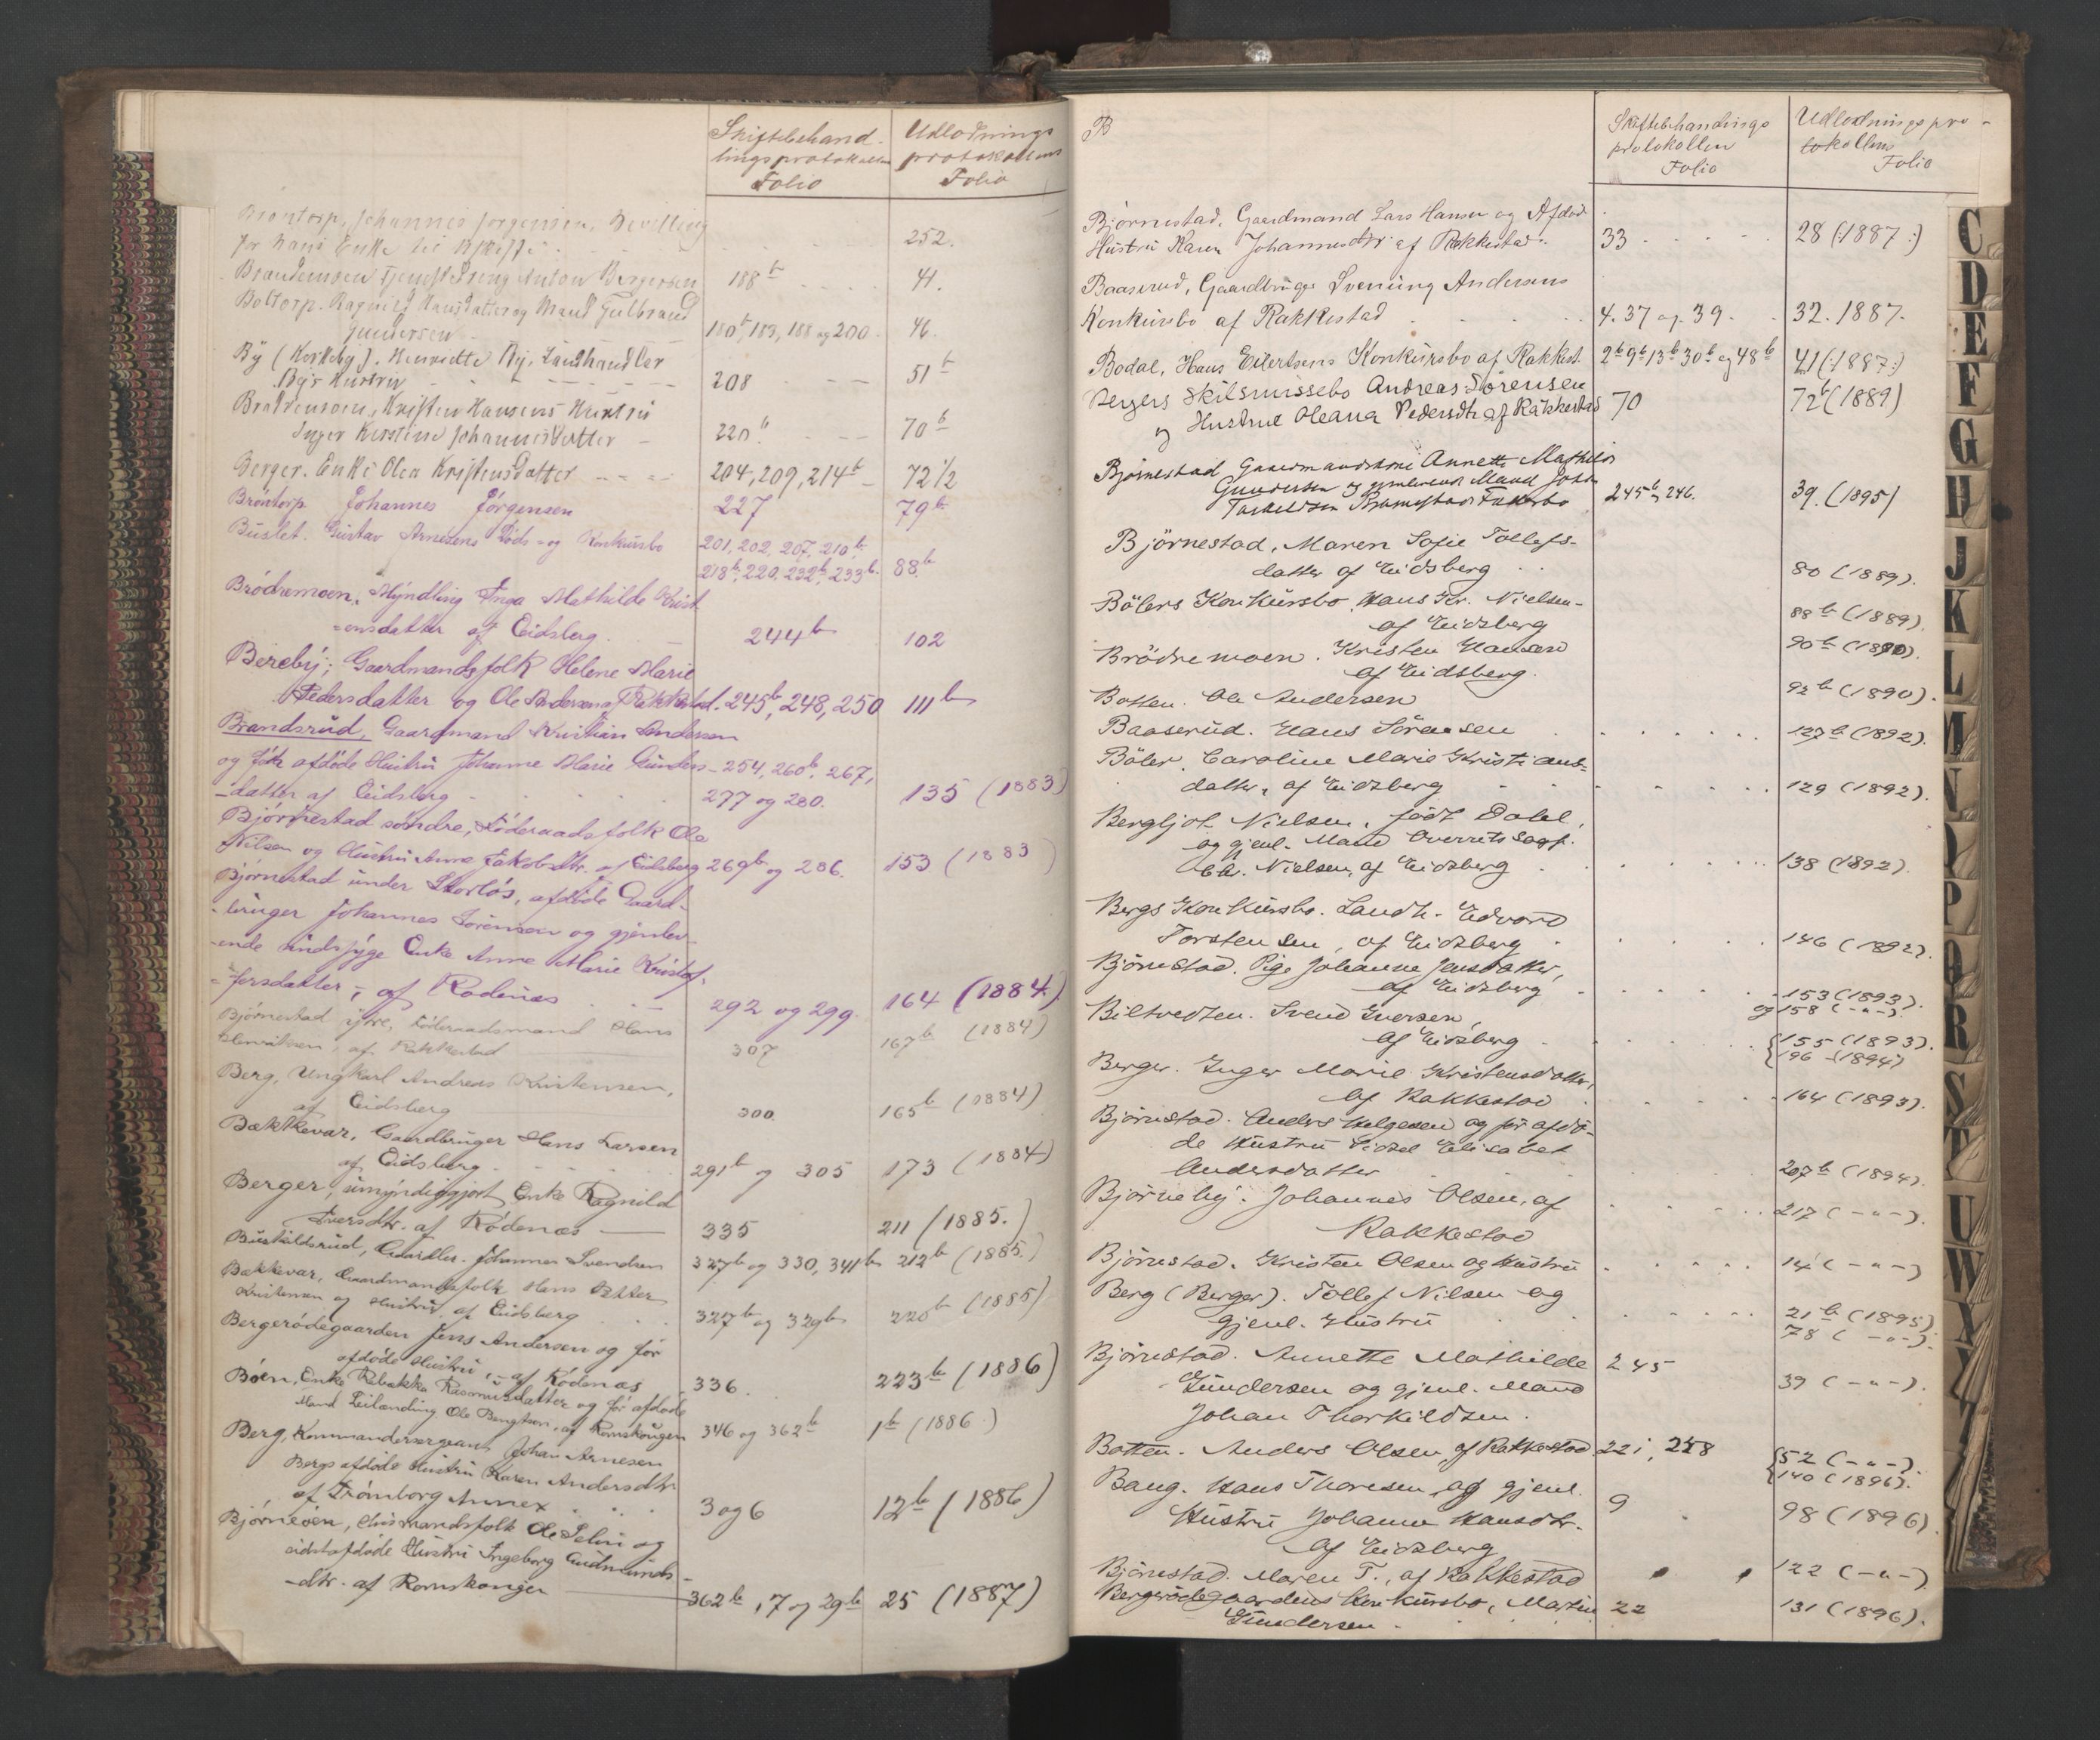 Skiftebehand-
lingsprotokollen
Folio
Udlodnings
protokollens
Folio
Bröntorp, Johannes Jörgensen, Bevilling
for hans Enke til
252.
Brandemoen Anton Bergersen 188b 41.
Boltorp. Ragnild Hansdatter og Mand Gulbrand
Gundersen 180b, 183, 188 og 200. 46.
By (Kirkeby). Henriette By, Landhandler
By's Hustru 208 51b
Brödremoen, Kristen Hansens Hustru
Inger Kirstine Johannesdatter 220b. 70b
Berger. Enke Olea Kristensdatter 204, 209, 214b 72 1/2
Bröntorp Johannes Jörgensen 227 79b
Buslet. Gustav Arnesens Döds- og Konkursbo 201, 202, 207, 210b,
218b, 220, 232b, 233b. 88b
Brödremoen, Myndling Inga Mathilde Krist-
=ensdatter af Eidsberg. 244b 102
Bereby; Gaardmandsfolk Helene Marie
Pedersdatter og Ole Andersen af Rakkestad. 245b, 248, 250 111b
Brandsrud, Gaardmand Kristian Andersen
og før afdöde Hustru Johanne Marie Gunders- 254, 260b, 267,
-datter af Eidsberg 277 og 280. 135 (1883)
Björnestad söndre, Föderaadsfolk Ole
Nilsen og Hustru Anne Jakobsdtr. af Eidsberg 269b og 286. 153 (1883)
Björnestad under Storlös, afdöde Gaard-
-bruger Johannes Sörensen og gjenlev-
-ende Enke Anne Marie Kristof-
=fersdatter, af Rödenæs 292 og 299. 164 (1884)
Björnestad Föderaadsmand Hans
Henriksen, af Rakkestad 307 167b (1884)
Berg, Ungkarl Andreas Kristensen,
af Eidsberg 300 165b (1884)
Bækkevar, Gaardbruger Hans Larsen
af Eidsberg 291b og 305 173 (1884)
Berger, umyndiggjort Enke Ragnild
Iversdtr. af Rödenæs 335 211 (1885.)
Buskildsrud, Gaardbr. Johannes Svendsen 327b og 330, 341b 212b (1885.)
Bækkevar, Gaardmandsfolk Hans Petter
Kristensen og Hustru af Eidsberg 327b og 329b 220b (1885)
Bergerödegaarden Jens Andersen og før
afdöde Hustru, af Rödenæs 336. 223b (1886)
Böen, Enke Rebekka Rasmusdatter og før afdöde
Mand Leilænding Ole Bengtson, af Romskougen 346 og 362b 1b (1886.)
Berg, Kommandersergeant Johan Arnesen
Bergs afdöde Hustru Karen Andersdtr.
af Trömborg Annex 3 og 6 12b (1886)
Björneöen, Husmandsfolk Ole og
sidstafdöde Hustru Ingeborg Gudmunds-
-dtr. af Romskougen 362b, 7 og 29b 25 (1887)
B
Skiftebehandlings
protokollen
Folio
Udlodningspro-
tokollen
Folio
Björnestad, Gaardmand Lars Hansen og Afdöd
Hustru Karen Johannesdtr af Rakkestad. 33 28 (:1887:)
Baaserud, Gaardbruger Svening Andersens
Konkursbo af Rakkestad 4. 37 og 39. 32. 1887.
Bodal, Hans Eilertsens Konkursbo af Rakkest. 2b 9b 13b 30b og 48b 41 (:1887:)
Bergers Skilsmissebo Andreas Sörensen
og Hustrue Oleana Pedersdtr af Rakkestad 70 72b (1889)
Björnestad Gaardmandskone Annette Mathilde
Gundersen og gjenlevende Mand Johan
Torkildsen Björnestads Fællesbo 245b og 246. 39. (1895)
Björnestad, Maren Sofie Tollefs-
datter af Eidsberg 80 (1889).
Bölers Konkursbo, Hans Kr. Nielsen-
af Eidsberg 88b (1889).
Brödremoen. Kristen Hansen
af Eidsberg. 90b (1890).
Botten. Ole Andersen 92b (1890).
Baaserud. Hans Sörensen 127b (1892).
Böler. Caroline Marie Kristians-
datter, af Eidsberg 129 (1892).
Bergljot Nielsen, född Dahl,
og gjenl. Mand Overretssagf.
Chr. Nielsen, af Eidsberg 138 (1892).
Bergs Konkursbo. Landh. Edvard
Torstensen, af Eidsberg 146 (1892).
Björnestad. Pige Johanne Jensdatter,
af Eidsberg 153 (1893).
og 158 (-"-).
Biltvedten. Svend Iversen,
af Eidsberg {155 (1893).
{196 (1894)
Berger. Inger Marie Kristensdatter,
af Rakkestad 164 (1893).
Björnestad. Anders Helgesen og før afdö-
de Hustru Sidsel Elisabet
Andersdatter 207b (1894).
Björneby. Johannes Olsen, af
Rakkestad 217 (-"-).
Björnestad. Kristen Olsen og Hustru 14 (-"-)
Berg (Berger). Tollef Nilsen og
gjenl. Hustru 21b (1895)
78 (-"-).
Björnestad. Annette Mathilde 245
Gundersen og gjenl. Mand 39 (-"-).
Johan Thorkildsen.
Botten. Anders Olsen, af Rakkestad 221, 258 {52 (-"-).
{140 (1896).
Baug. Hans Thoresen og gjenl. 9
Hustru Johanne Hansdtr. 98 (1896).
af Eidsberg
Björnestad. Maren T., af Rakkestad 122 (-"-)
Bergerödegaardens Konkursbo, Martin 22 131 (1896).
Gundersen.
C
D
E
F
G
H
J
K
L
M
N
O
P
Q
R
S
T
U
W
Y